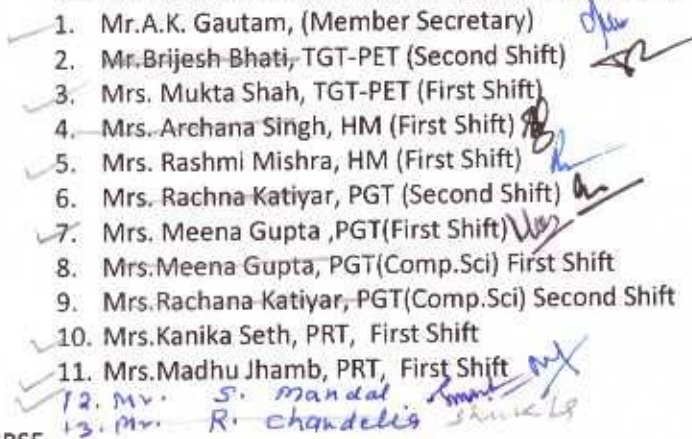 1. Mr.A.K. Gautam, (Member Secretary)
2. Mr.Brijesh Bhati, TGT-PET (Second Shift)
3. Mrs. Mukta Shah, TGT-PET (First Shift)
4. Mrs. Archana Singh, HM (First Shift)
5. Mrs. Rashmi Mishra, HM (First Shift)
6. Mrs. Rachna Katiyar, PGT (Second Shift)
7. Mrs. Meena Gupta ,PGT(First Shift)
8. Mrs.Meena Gupta, PGT(Comp.Sci) First Shift
9. Mrs.Rachana Katiyar, PGT(Comp.Sci) Second Shift
10. Mrs.Kanika Seth, PRT, First Shift
11. Mrs.Madhu Jhamb, PRT, First Shift
12. Mr. S. Mandal
13. Mr. R. Chandelia